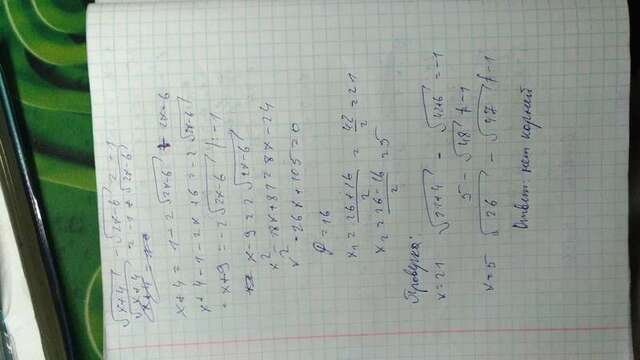 √(x+4) - √(2x-6) = -1
√(x+4) = -1 + √(2x-6)
x+4 = 1 - 2√(2x-6) + 2x-6
x+4-1-2x+6 = -2√(2x-6)
-x+9 = -2√(2x-6) | ·(-1)
x-9 = 2√(2x-6)
x² - 18x + 81 = 8x - 24
x² - 26x + 105 = 0
D = 16
x₁ = (26+16)/2 = 42/2 = 21
x₂ = (26-16)/2 = 5
Проверка:
x=21 √(21+4) - √(42+6) = -1
5 - √48 ≠ -1
x=5 √26 - √47 ≠ -1
Ответ: нет корней